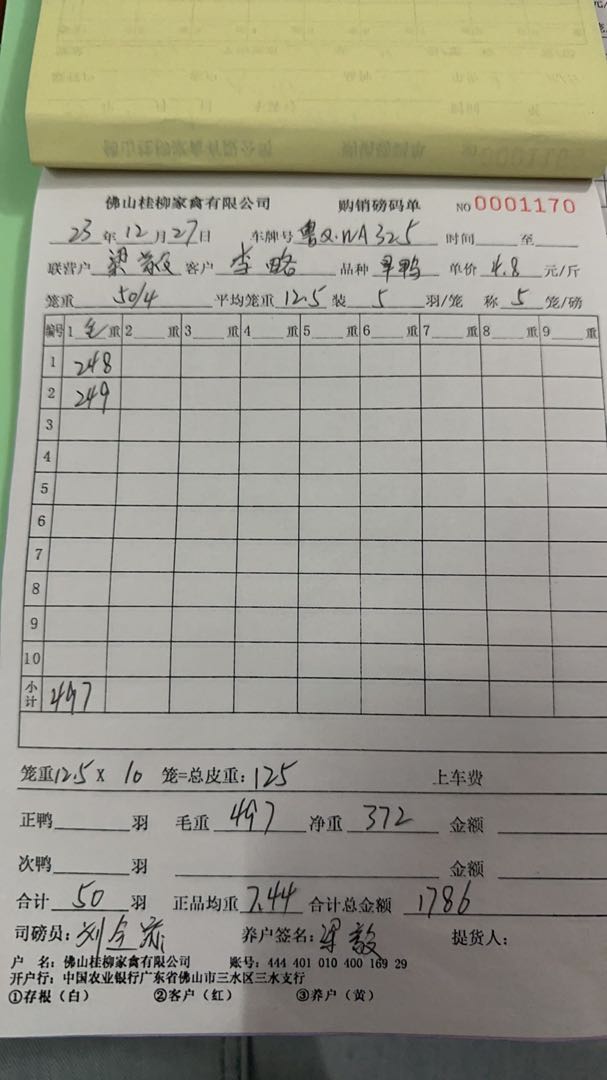 佛山桂柳家禽有限公司 购销磅码单 NO 0001170
23 年 12 月 27 日 车牌号 粤Q.WA325 时间 至
联营户 梁敬 客户 李略 品种 旱鸭 单价 4.8 元/斤
笼重 50/4 平均笼重 12.5 装 5 羽/笼 称 5 笼/磅
编号 1 毛 重 2 重 3 重 4 重 5 重 6 重 7 重 8 重 9 重
1 248
2 249
3
4
5
6
7
8
9
10
小计 497
笼重 12.5 X 10 笼=总皮重: 125 上车费
正鸭 羽 毛重 497 净重 372 金额
次鸭 羽 金额
合计 50 羽 正品均重 7.44 合计总金额 1786
司磅员: 养户签名: 梁敬 提货人:
户 名: 佛山桂柳家禽有限公司 账号: 444 401 010 400 169 29
开户行: 中国农业银行广东省佛山市三水区三水支行
①存根(白) ②客户(红) ③养户(黄)